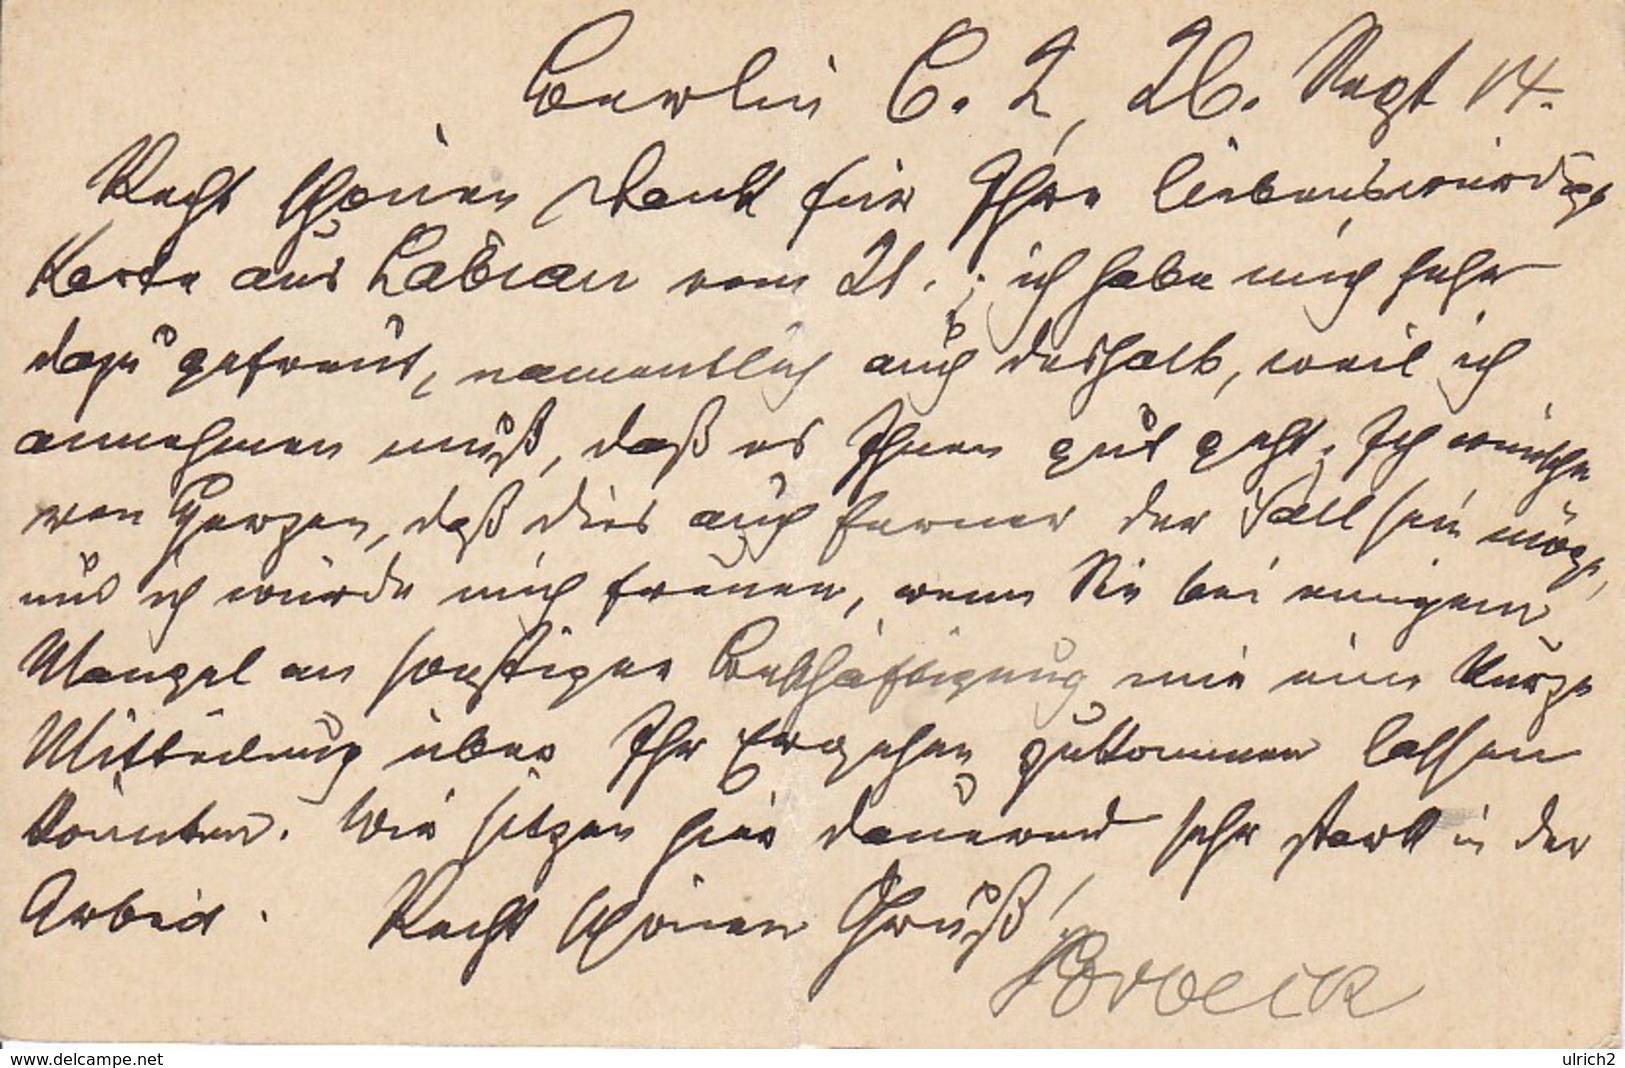 Berlin C. 2, 26. Sept 14.
Recht schönen Dank für Ihre liebenswürdige
Karte aus Labiau vom 21.; ich habe mich sehr
dazu gefreut, namentlich auch deshalb, weil ich
annehmen muß, daß es Ihnen gut geht. Ich wünsche
von Herzen, daß dies auch ferner der Fall sein möge,
und ich würde mich freuen, wenn Sie bei einigem
Mangel an sonstiger Beschäftigung mir eine kurze
Mitteilung über Ihr Ergehen zukommen lassen
könnten. Wir sitzen hier dauernd sehr stark in der
Arbeit. Recht schönen Gruß!
www.delcampe.net
ulrich2